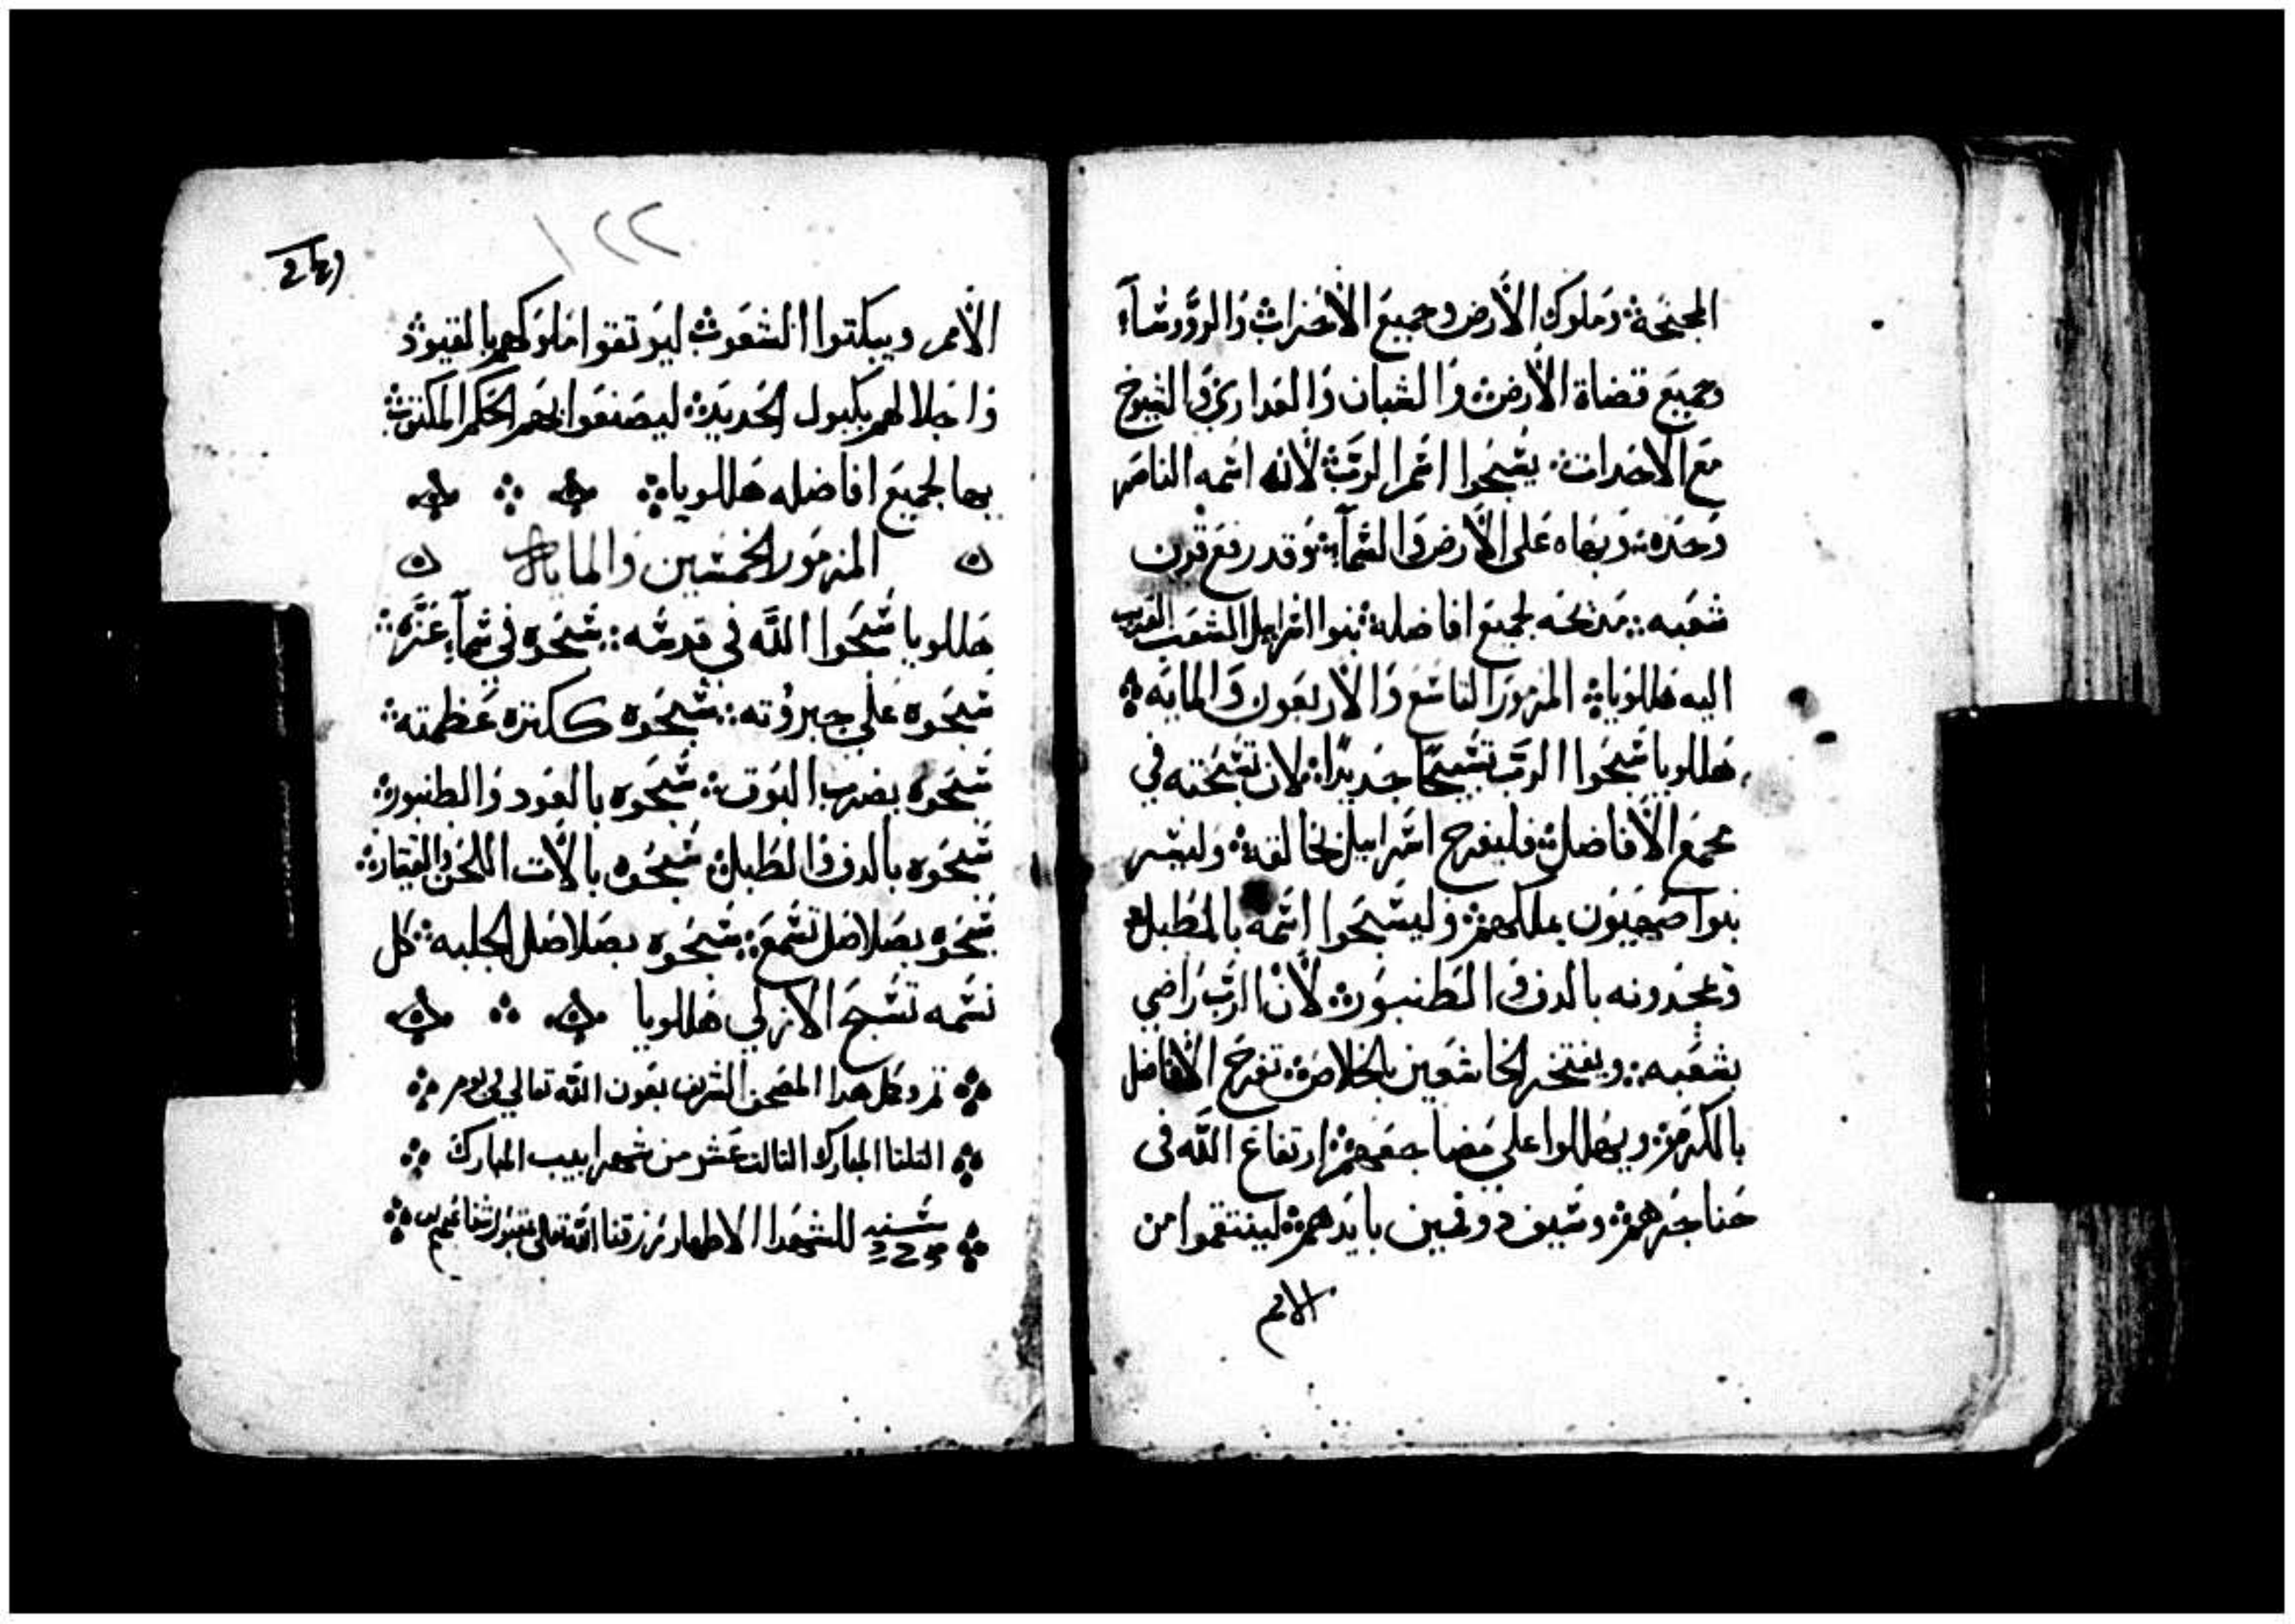 المجنحة وملوك الأرض وجميع الأحزاب والرؤوساء
وجميع قضاة الأرض والشبان والعداري والشيوخ
مع الاحدات يسبحوا اسم الرب لأنه اسمه
وحده وبهاه على الأرض والسمآء وقد رفع قرن
شعبه مدحه لجميع افاضله بنوا اسراييل الشعب القريب
اليه هللويا المزمور التاسع والاربعون والمايه
هللويا سبحوا الرب تسبيحًا جديدًا لان تسبحته في
مجمع الأفاضل فليفرح اسراييل بخالقه
بنوا صهيون بملكهم وليسبحوا اسمه بالطبل
ويمجدونه بالدف والطنبور لأن الرب راضي
بشعبه ويفتخر الخاشعين بالخلاص تفرح الأفاضل
بالكرمة ويهللوا علي مضاجعهم ارتفاع الله فى
حناجرهم وسيف ذو فمين بايدهم لينتقموا من
الامم
١٢٢
الأمم ويبكتوا الشعوب ليوتقوا ملوكهم بالقيود
واجلالهم بكبول الحديد ليصنعوا بهم الحكم المكتوب
بها لجميع افاضله هللويا
المزمور الخمسين والمايه
هللويا سبحوا الله في قدسه سبحوه في سمآء عزه
سبحوه علي جبروته سبحوه ككترة عظمته
سبحوه بضرب البوق سبحوه بالعود والطنبور
سبحوه بالدف والطبل سبحوه بالآت اللحن والقيتار
سبحوه بصلاصل تسمع سبحوه بصلاصل الجلبه كل
نسمه تسبح الازلي هللويا
تم وكمل هدا المصحف الشريف بعون الله تعالي في يوم
التلتا المبارك التالت عشر من شهر ابيب المبارك
سنه للشهدا الاطهار رزقنا الله تعالى